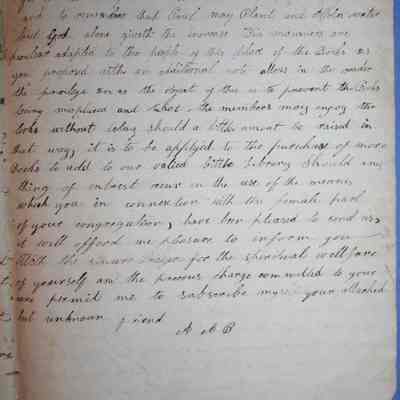 and to remember that Paul may Plant and Apolos water
but God alone giveth the increase
peculiar adapted to the people of this place of the Books as
you proposed with an additional note, allow in the reader
the privilege as the object of this is to prevent the Books
being misplaced and that the members may enjoy the
books without delay should a little amount be raised in
that way, it is to be applyed to the purchase of more
Books to add to our valued little Library Should any
thing of interest occur in the use of the means
which you in connection with the female part
of your congregation, have been pleased to send us,
it will afford me pleasure to inform you
With the sincere for the spiritual wellfare
of yourself and the precious charge committed to your
care permit me to subscribe myself your attached
but unknown friend